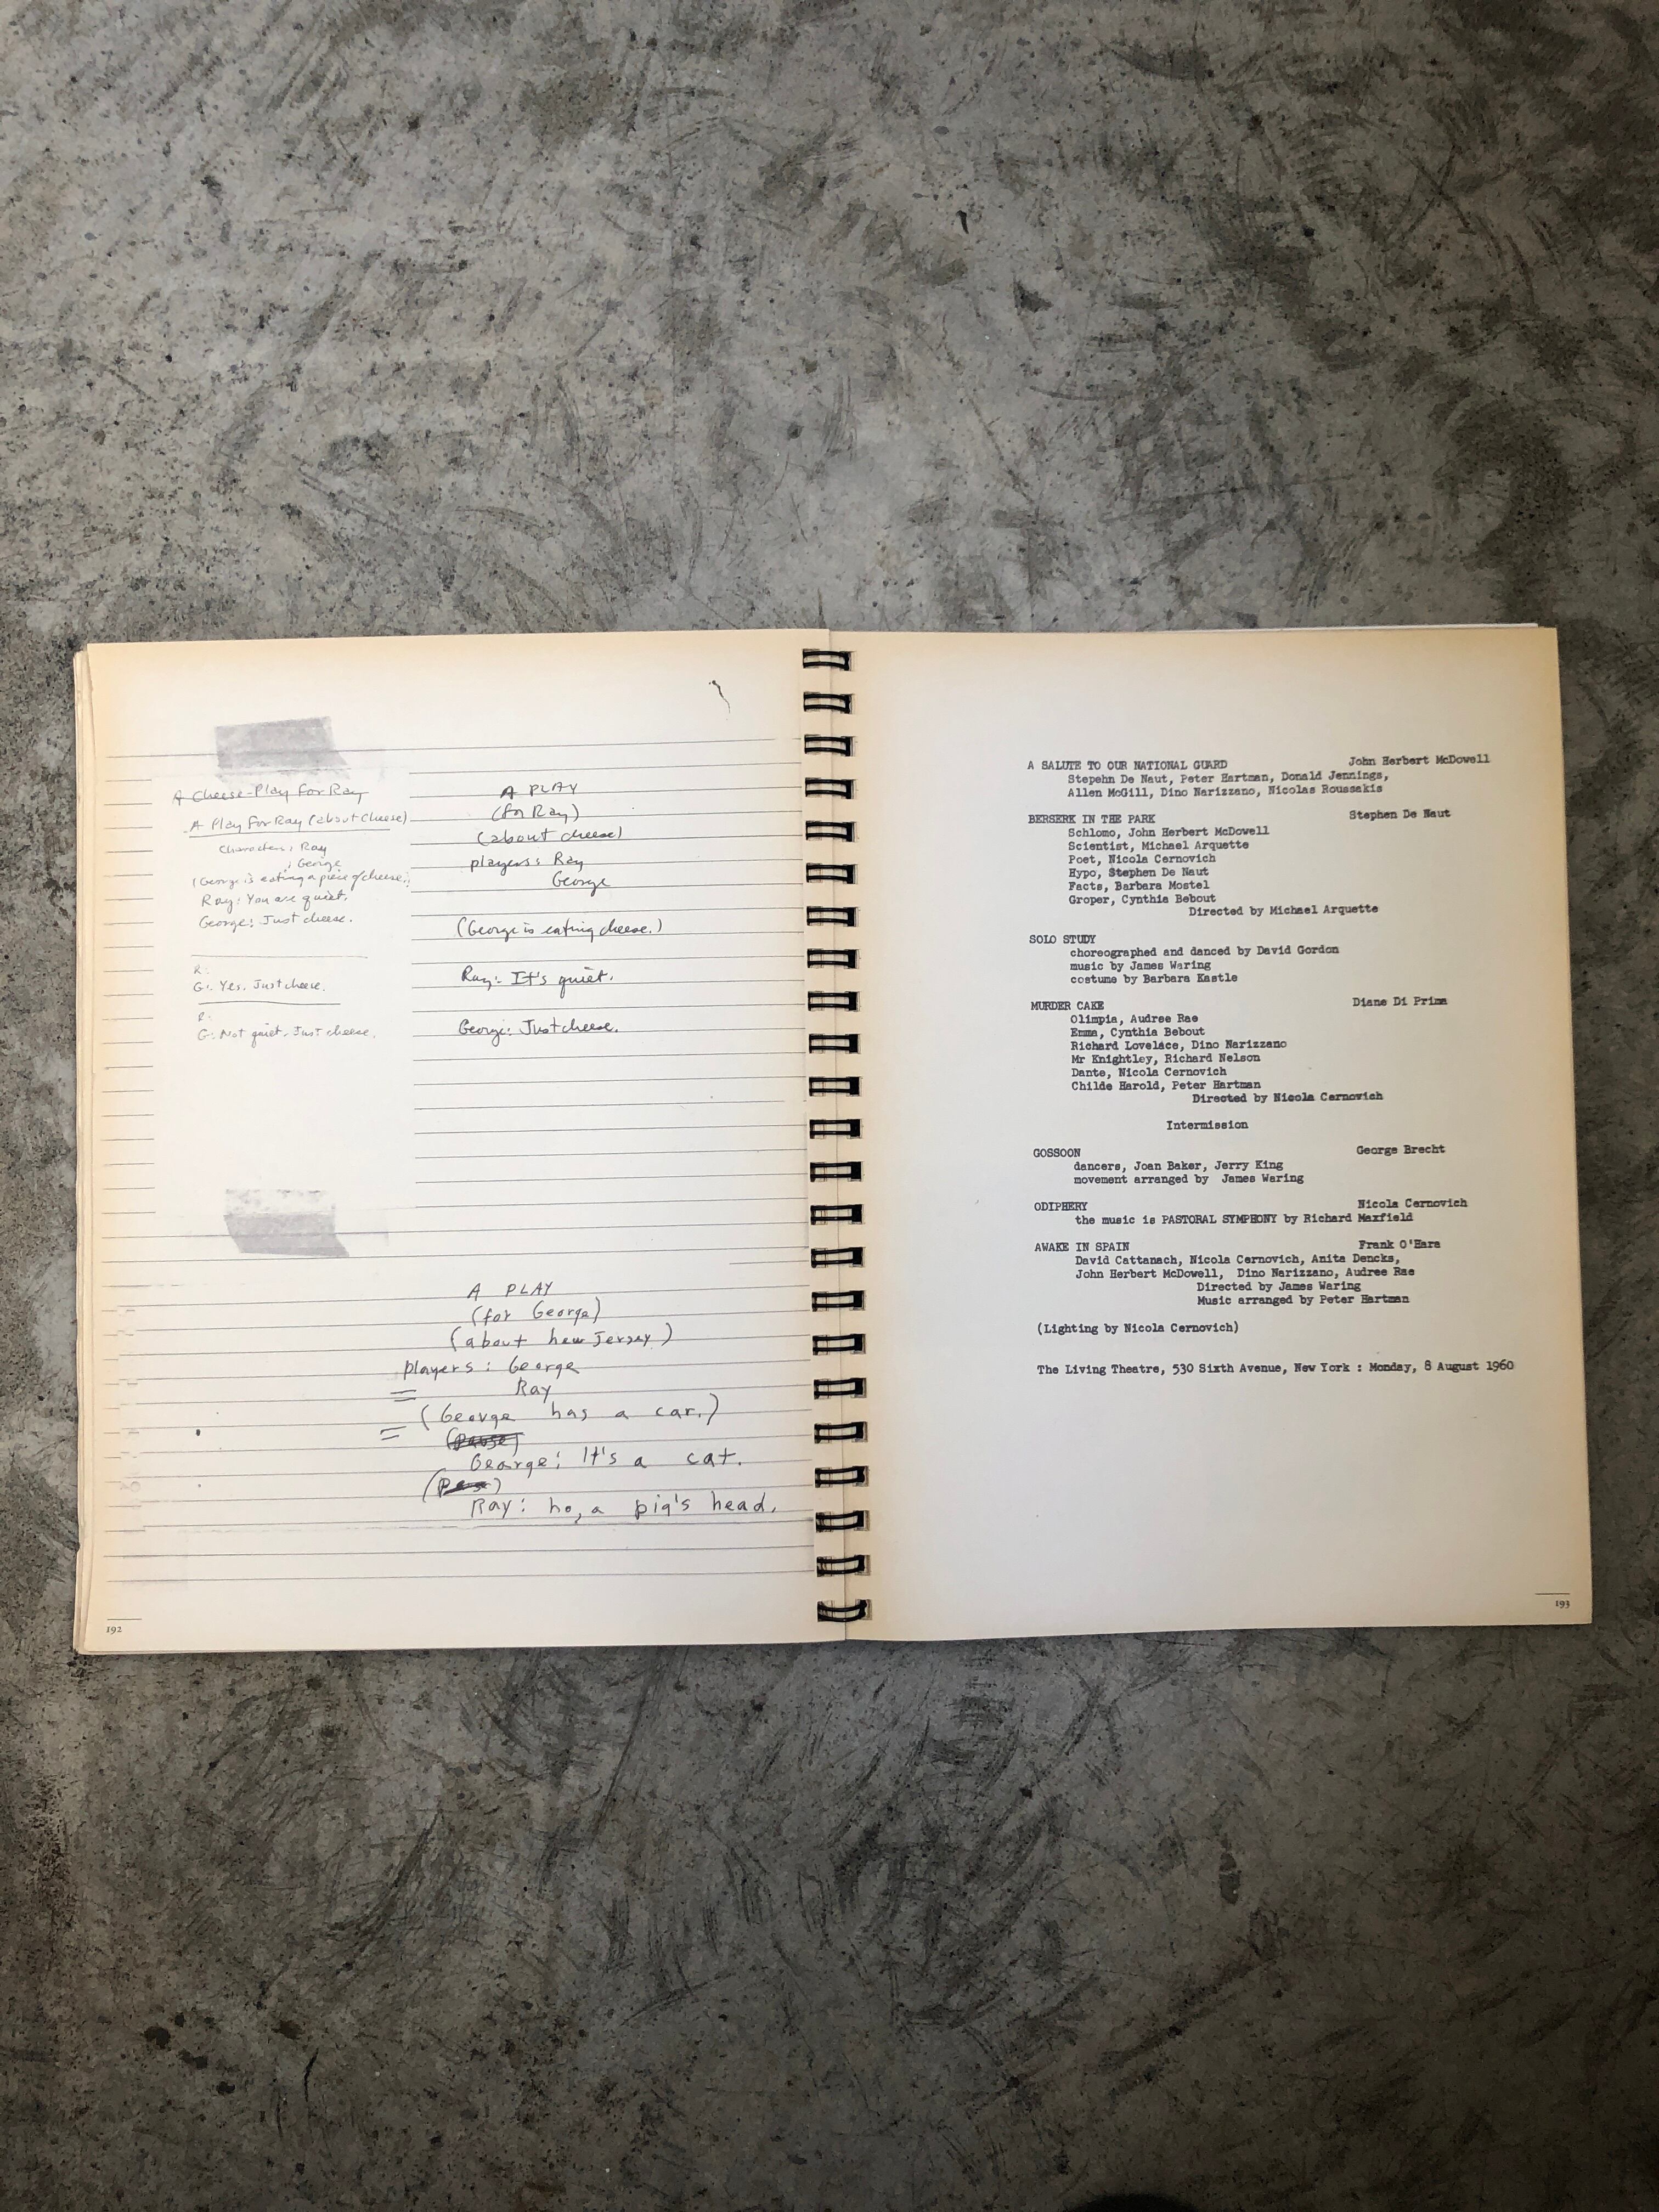 A Cheese-Play for Ray
A Play For Ray (about Cheese)
Characters: Ray
: George
(George is eating a piece of cheese.)
Ray: You are quiet.
George: Just cheese.
R:
G: Yes. Just cheese.
R:
G: Not quiet. Just cheese.
A PLAY
(for Ray)
(about cheese)
players: Ray
George
(George is eating cheese.)
Ray: It's quiet.
George: Just cheese.
A PLAY
(for George)
(about new Jersey)
players: George
Ray
(George has a car.)
(pause)
George: It's a cat.
Ray: no, a pig's head.
192
A SALUTE TO OUR NATIONAL GUARD John Herbert McDowell
Stepehn De Naut, Peter Hartman, Donald Jennings,
Allen McGill, Dino Narizzano, Nicolas Roussakis
BERSERK IN THE PARK Stephen De Naut
Schlomo, John Herbert McDowell
Scientist, Michael Arquette
Poet, Nicola Cernovich
Hypo, Stephen De Naut
Facts, Barbara Mostel
Groper, Cynthia Bebout
Directed by Michael Arquette
SOLO STUDY
choreographed and danced by David Gordon
music by James Waring
costume by Barbara Kastle
MURDER CAKE Diane Di Prima
Olimpia, Audree Rae
Emma, Cynthia Bebout
Richard Lovelace, Dino Narizzano
Mr Knightley, Richard Nelson
Dante, Nicola Cernovich
Childe Harold, Peter Hartman
Directed by Nicola Cernovich
Intermission
GOSSOON George Brecht
dancers, Joan Baker, Jerry King
movement arranged by James Waring
ODIPHERY Nicola Cernovich
the music is PASTORAL SYMPHONY by Richard Maxfield
AWAKE IN SPAIN Frank O'Hara
David Cattanach, Nicola Cernovich, Anita Dencks,
John Herbert McDowell, Dino Narizzano, Audree Rae
Directed by James Waring
Music arranged by Peter Hartman
(Lighting by Nicola Cernovich)
The Living Theatre, 530 Sixth Avenue, New York : Monday, 8 August 1960
193